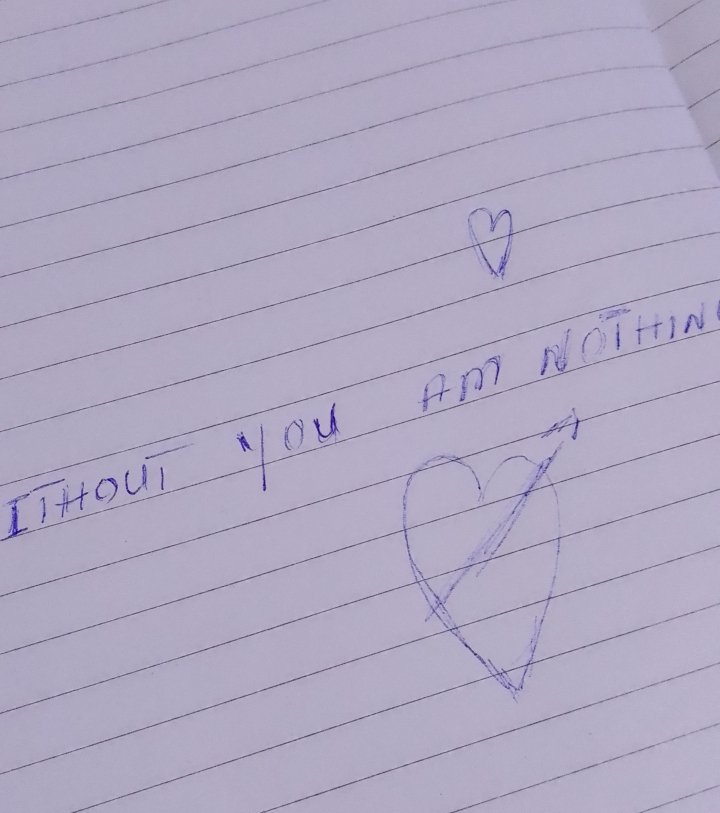 ITHOUT YOU AM NOTHIN